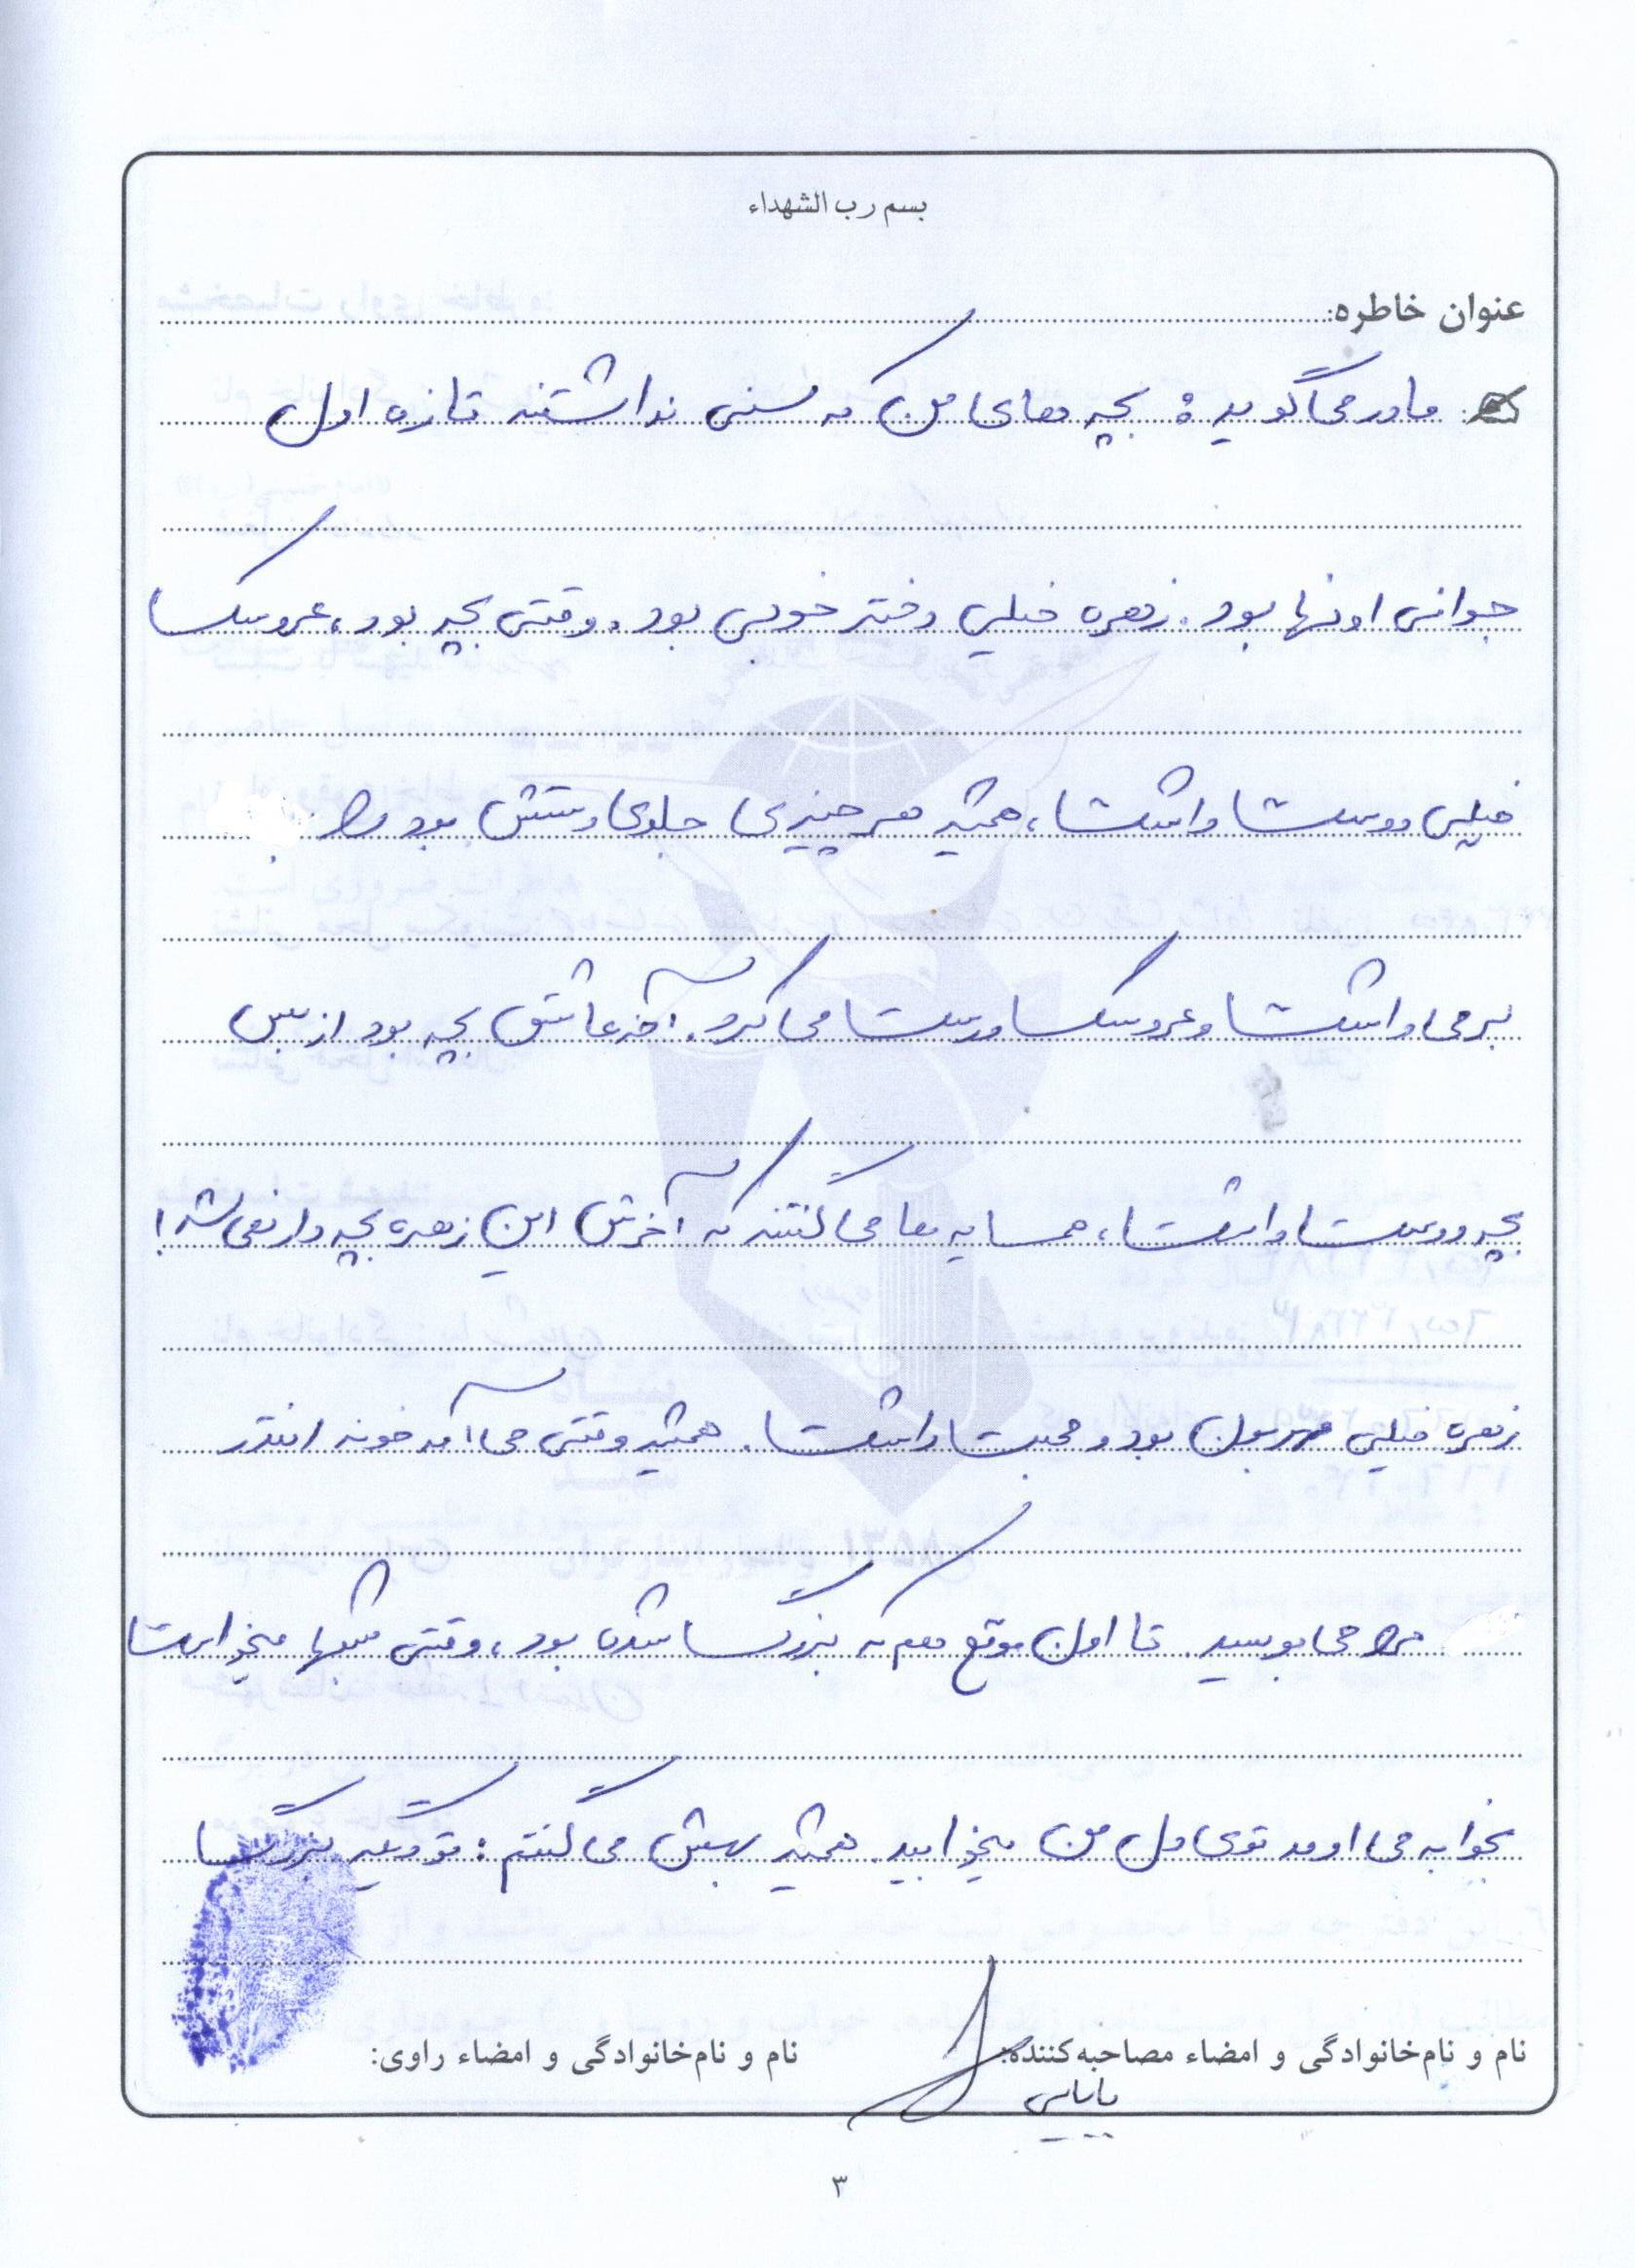 بسم رب الشهداء
عنوان خاطره:
مادر می گوید: بچه های من که سنی نداشتند تازه اول
جوانی اونها بود. زهره خیلی دختر خوبی بود. وقتی بچه بود، عروسک
خیلی دوست داشت، همیشه هر چیزی جلوی دستش بود را
برمی داشت و عروسک درست می کرد. آخه عاشق بچه بود از بس
بچه دوست داشت، همسایه ها می گفتند که آخرش این زهره بچه دار نمی شد!
زهره خیلی مهربون بود و محبت داشت. همیشه وقتی می آمد خونه انقدر
مرا می بوسید. تا اون موقع هم که بزرگ شده بود، وقتی شبها میخواست
بخوابه می اومد توی بغل من میخوابید. همیشه بهش می گفتم: تو دیگه بزرگ
نام و نام‌خانوادگی و امضاء مصاحبه‌کننده:
بابایی
نام و نام‌خانوادگی و امضاء راوی:
۳